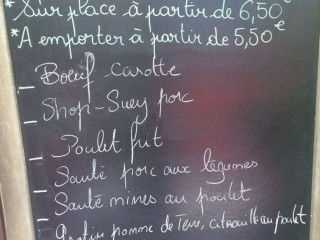 * Sur place à partir de 6,50€
* A emporter à partir de 5,50€
- Boeuf carotte
- Shop-Suey porc
- Poulet frit
- Sauté porc aux légumes
- Sauté mines au poulet
- Gratin pomme de Terre, citrouille au poulet